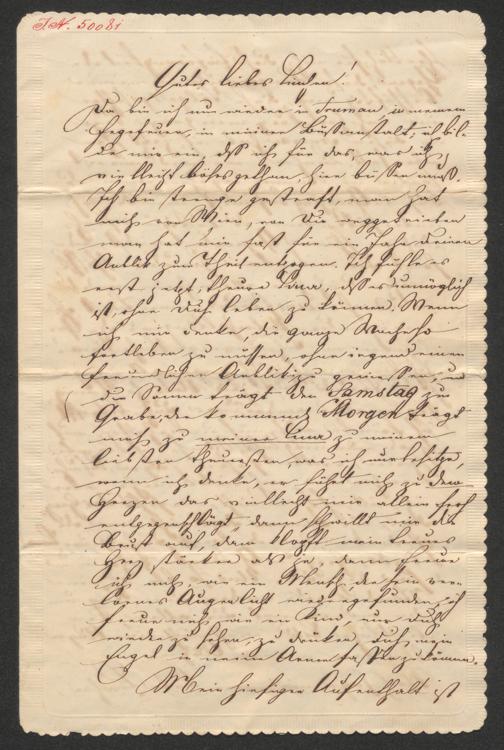 I.N. 50081
Gutes liebes Linchen!
Da bin ich nun wieder in in meinem
Fegefeuer, in meiner Bussanstalt, ich bil-
de mir ein, dass ich für das, was ich
vielleicht böses gethan, hier büssen muß.
Ich bin strenge gestraft, man hat
mich von Wien, von Dir weggerissen
man hat mir fast für ein Jahr Deinen
Anblick zum Theil entzogen. Ich fühle es
erst jetzt, theure Lina, dass es unmöglich
ist, ohne Dich leben zu können. Wenn
ich mir denke, die ganze Woche so
fortleben zu müssen, ohne irgend einen
freundlichen zu geniessen, und
die Sonne trägt den Samstag zu
Grabe, der kommende Morgen trägt
mich zu meiner Lina zu meinem
liebsten theuersten, was ich nur besitze,
wenn ich denke, er führt mich zu dem
Herzen das vielleicht mir allein
entgegenschlägt, dann schwillt mir die
Brust auf, dann klopft mein treues
Herz stärker als je, dann freue
ich mich, wie ein Mensch, der sein ver-
lorenes Augenlicht wiedergefunden, ich
freue mich wie ein Kind, nur Dich
wieder zu sehen, zu drücken, Dich, mein
Engel in meine Arme fassen zu können.
Mein hiesiger Aufenthalt ist